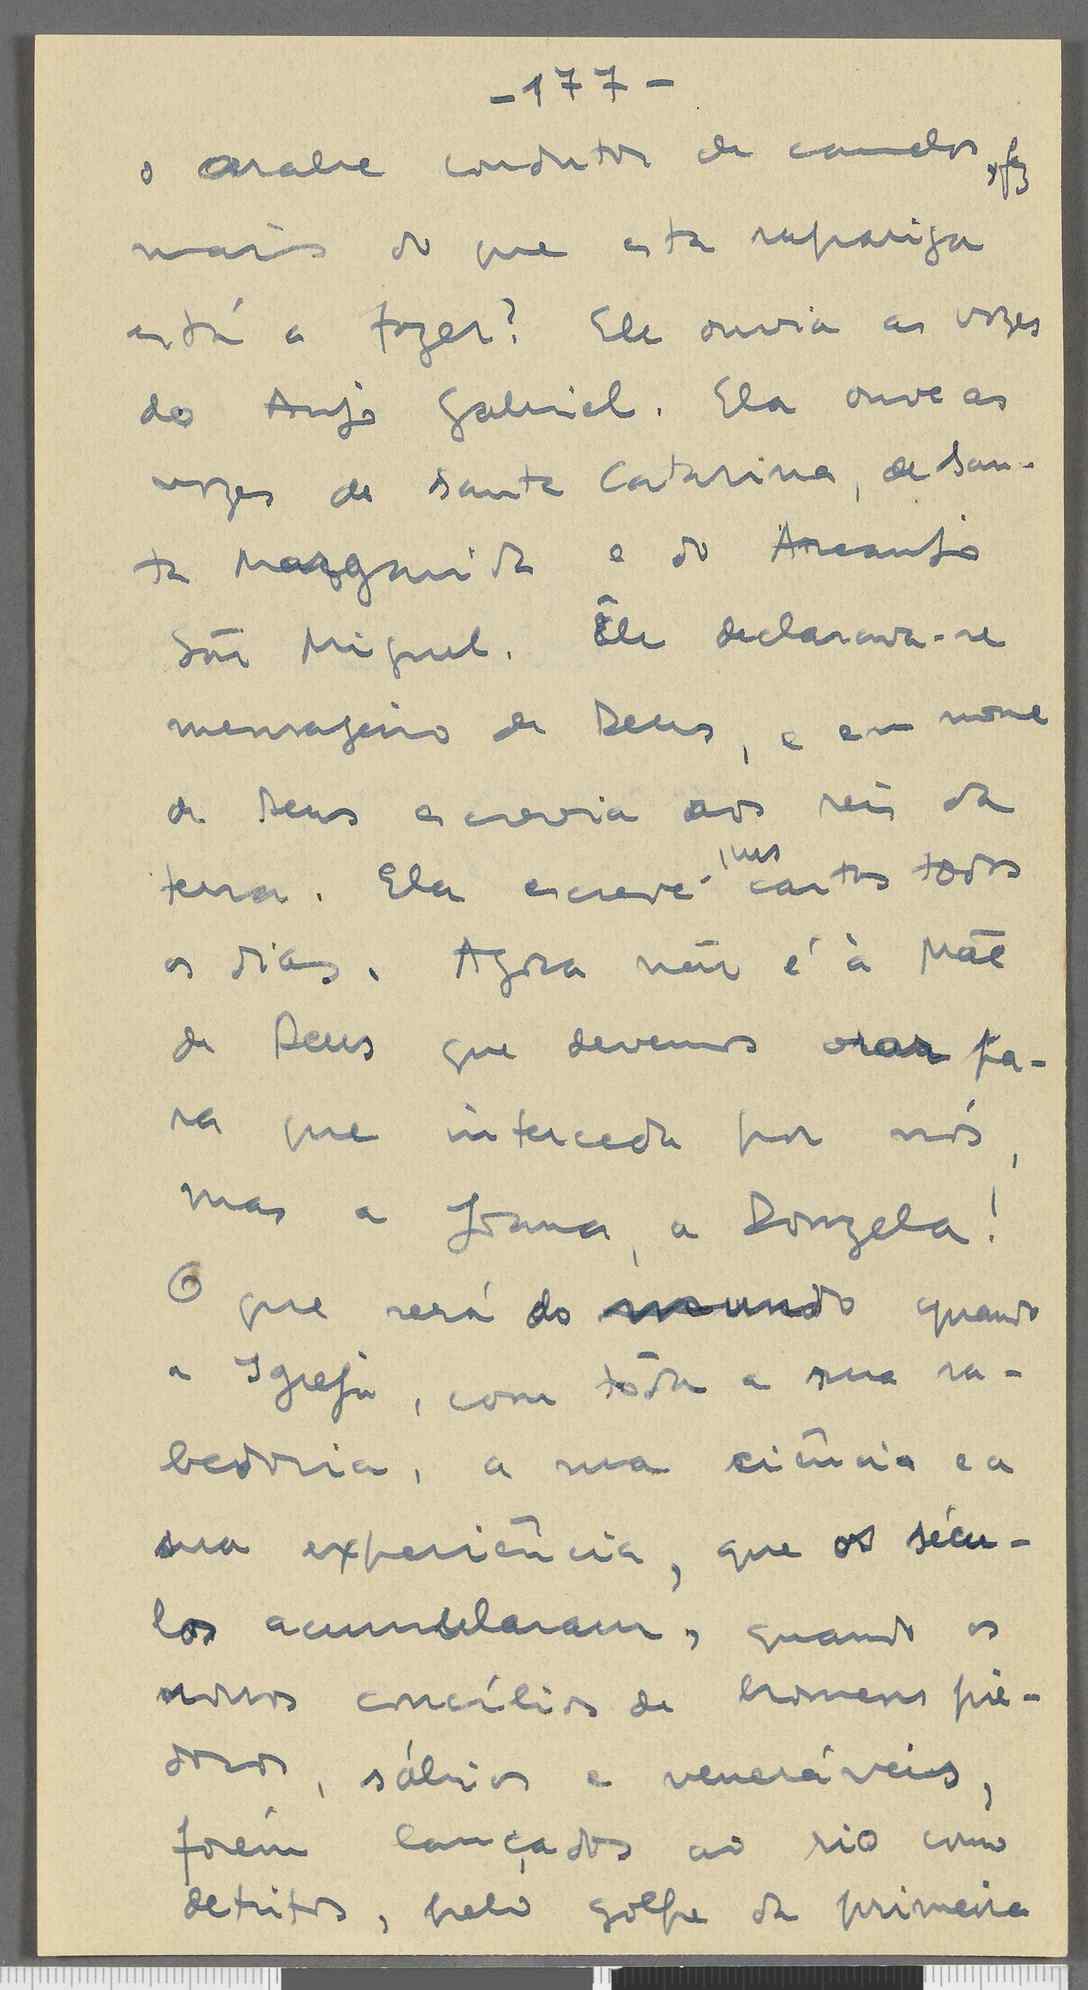 -177-
o arabe condutor de camelos, fez
mais do que esta rapariga
está a fazer? Ele ouvia as vozes
do Anjo Gabriel. Ela ouve as
vozes de Santa Catarina, de San-
ta Margarida e do Arcanjo
São Miguel. Êle declarava-se
mensageiro de Deus, e em nome
de Deus escrevia aos reis da
terra. Ela escreve-lhes cartas todos
os dias. Agora não é à Mãe
de Deus que devemos orar pa-
ra que interceda por nós,
mas a Joana, a Donzela!
O que será do mundo quando
a Igreja, com tôda a sua sa-
bedoria, a sua ciência e a
sua experiência, que os sécu-
los acumularam, quando os
nossos concílios de homens pie-
dosos, sábios e veneráveis,
forem lançados ao rio como
detritos, pelo golpe da primeira